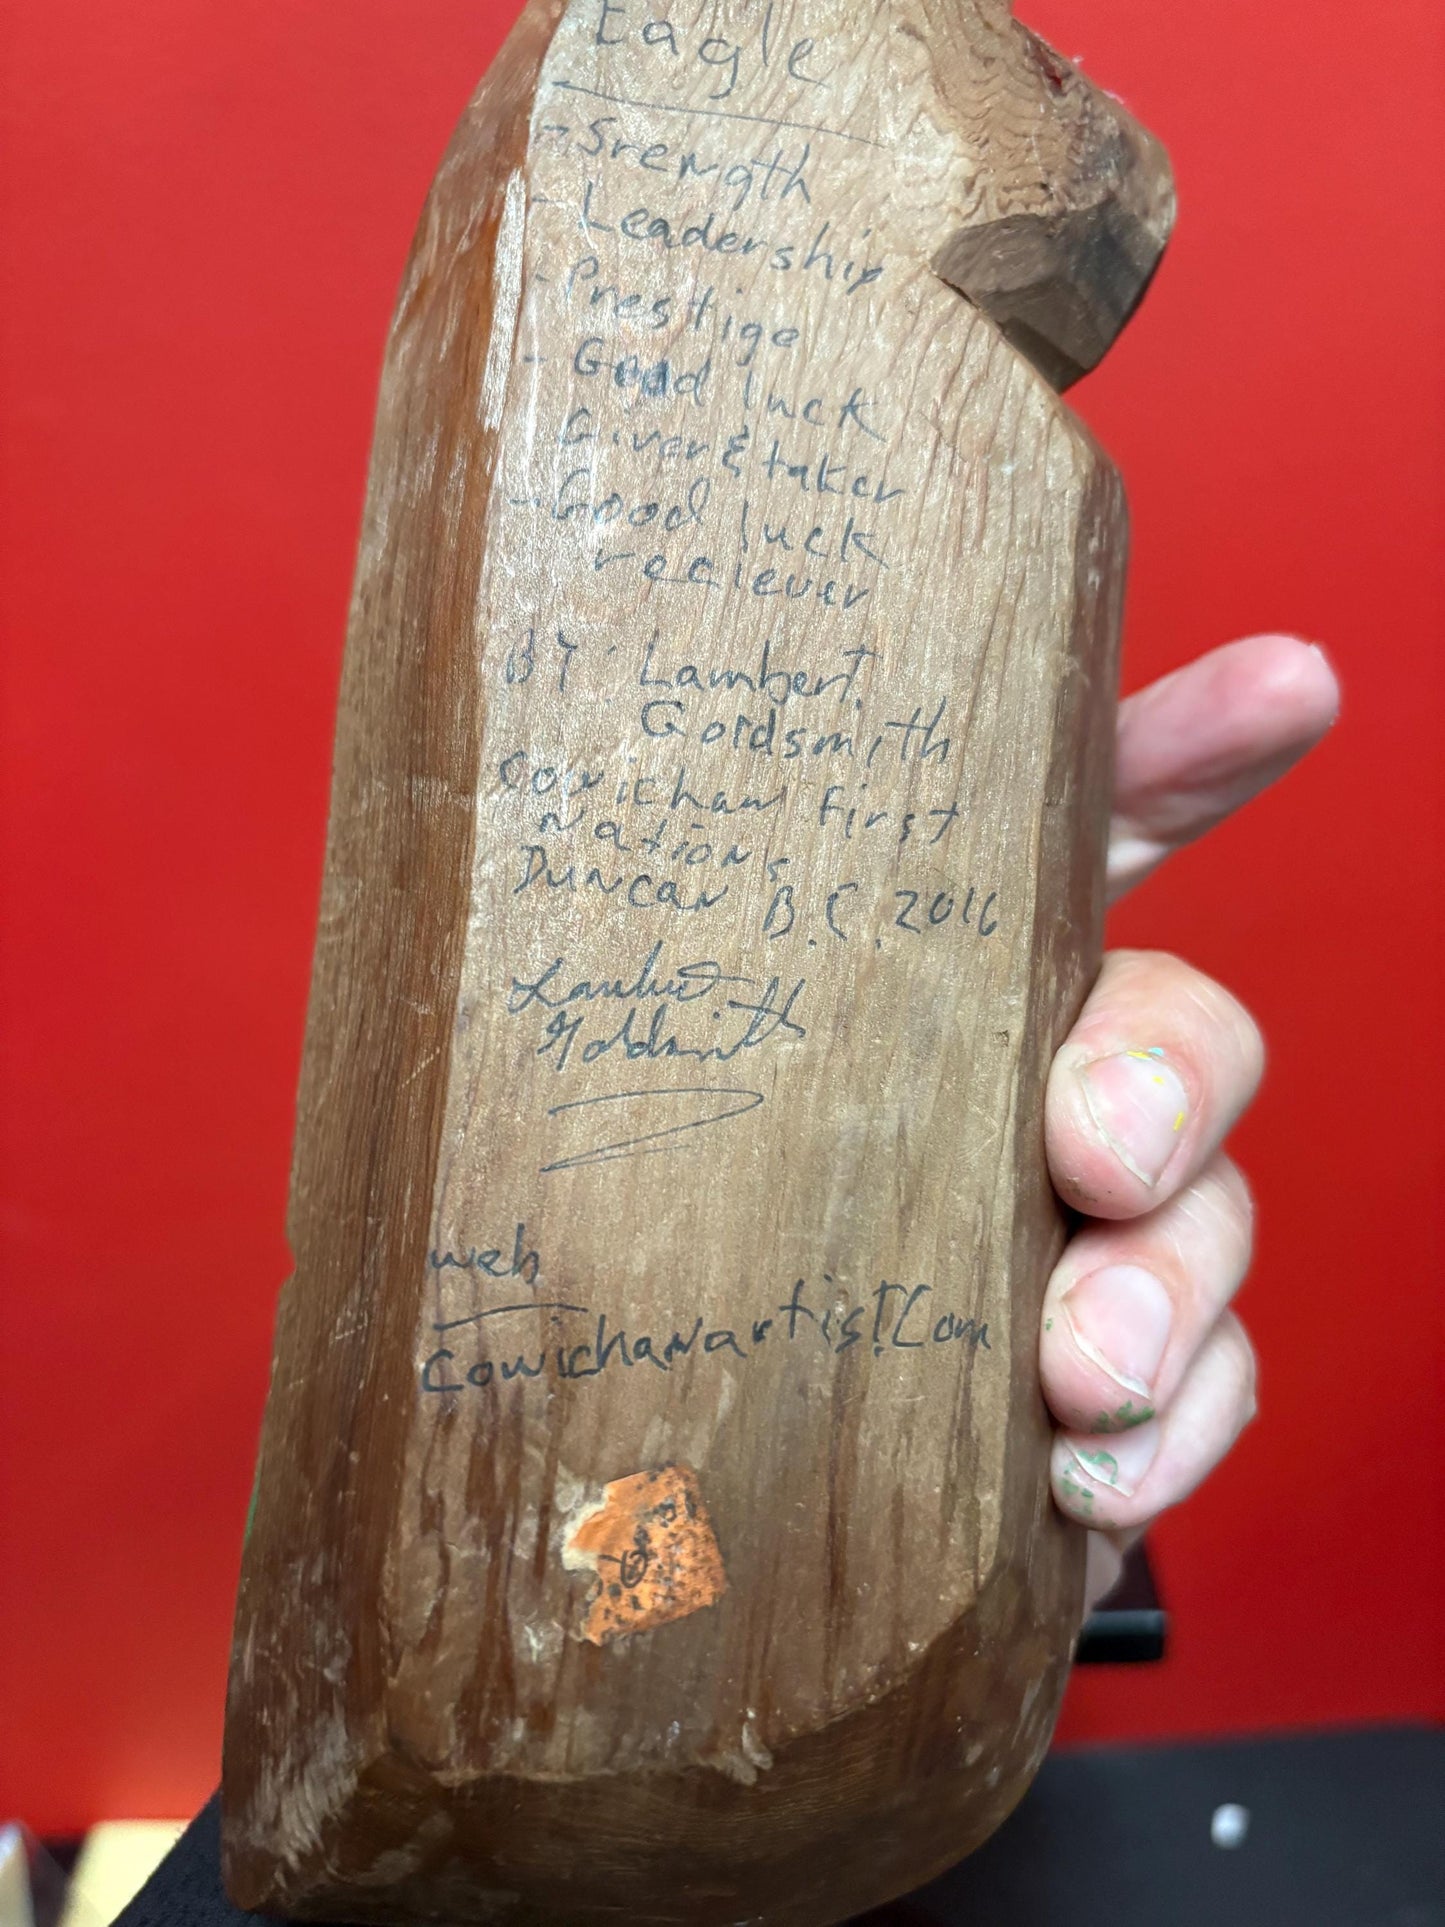 Eagle
- Srength
- Leadership
- Prestige
- Good luck
Giver & taker
- Good luck
reciever
BY: Lambert
Goldsmith
Cowichan First
Nations
Duncan B.C. 2016
Lambert
Goldsmith
web
cowichanartist.Com